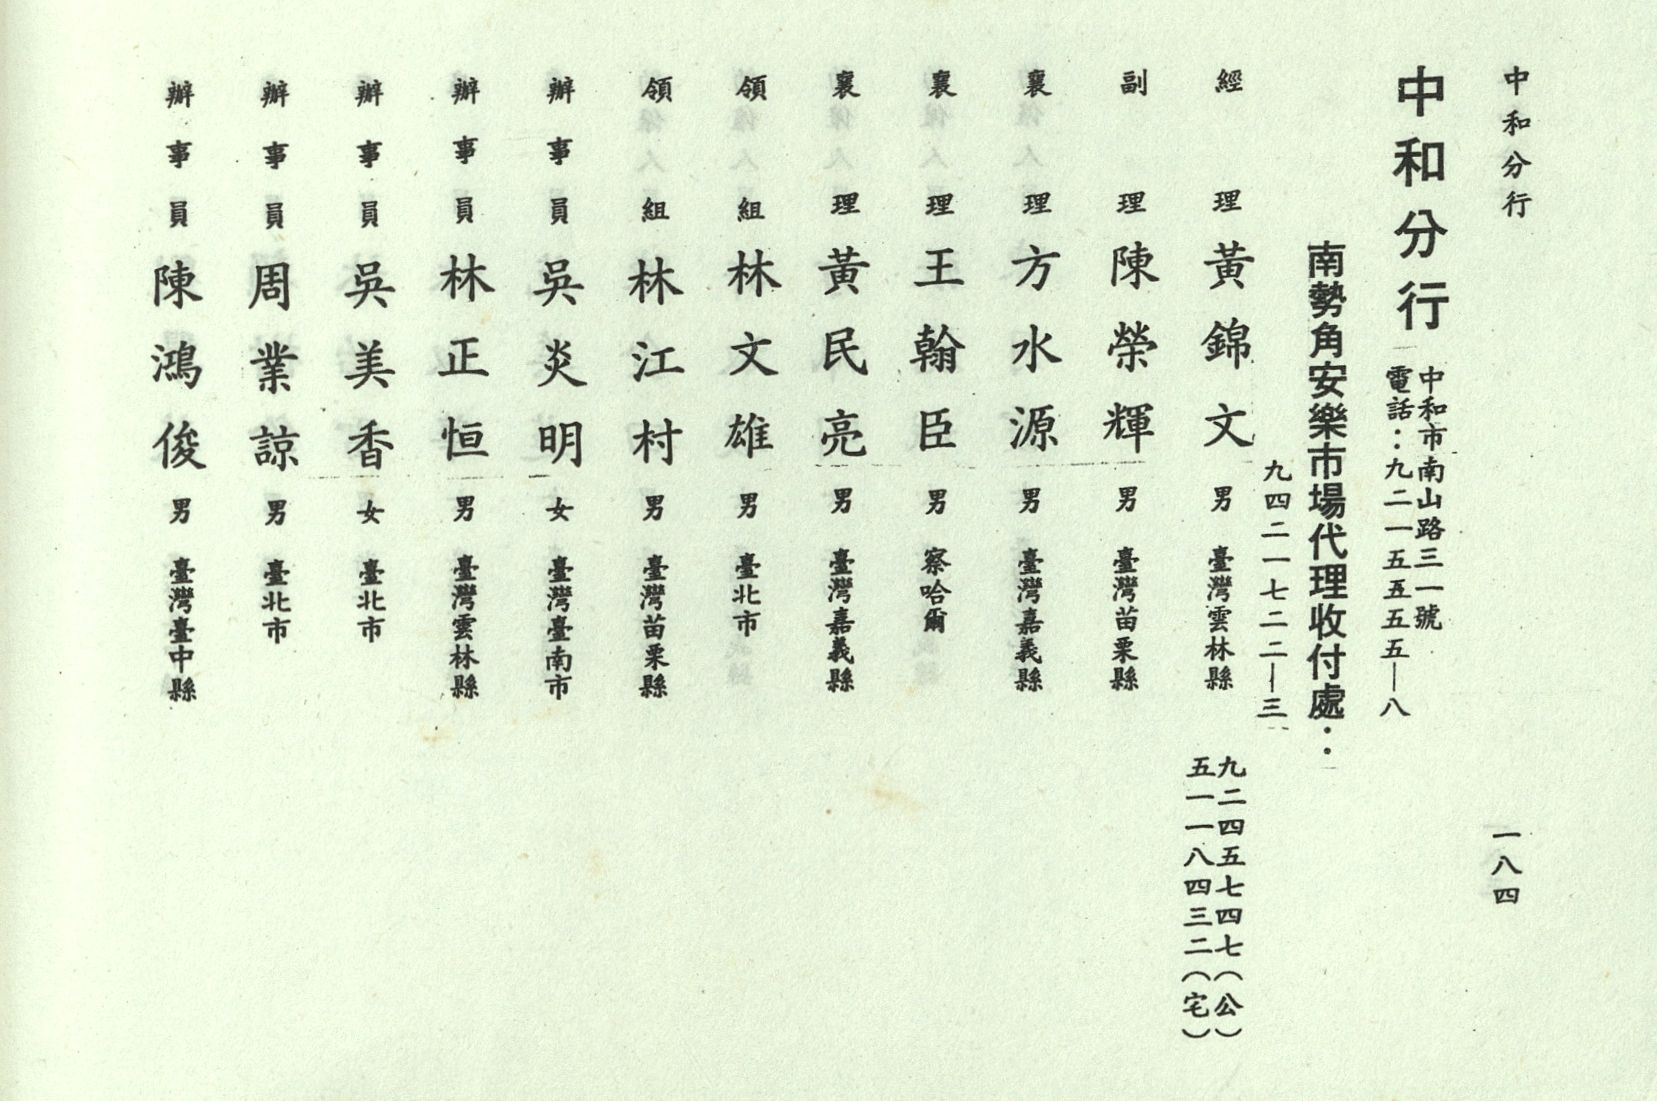 中和分行
一八四
中和分行
中和市南山路三一號
電話：九二一五五五五—八
南勢角安樂市場代理收付處：
九四二一七二二—三
經理 黃錦文 男 臺灣雲林縣
九二四五七四七（公）
五一一八四三二（宅）
副理 陳榮輝 男 臺灣苗栗縣
襄理 方水源 男 臺灣嘉義縣
襄理 王翰臣 男 察哈爾
襄理 黃民亮 男 臺灣嘉義縣
領組 林文雄 男 臺北市
領組 林江村 男 臺灣苗栗縣
辦事員 吳炎明 女 臺灣臺南市
辦事員 林正恒 男 臺灣雲林縣
辦事員 吳美香 女 臺北市
辦事員 周業諒 男 臺北市
辦事員 陳鴻俊 男 臺灣臺中縣